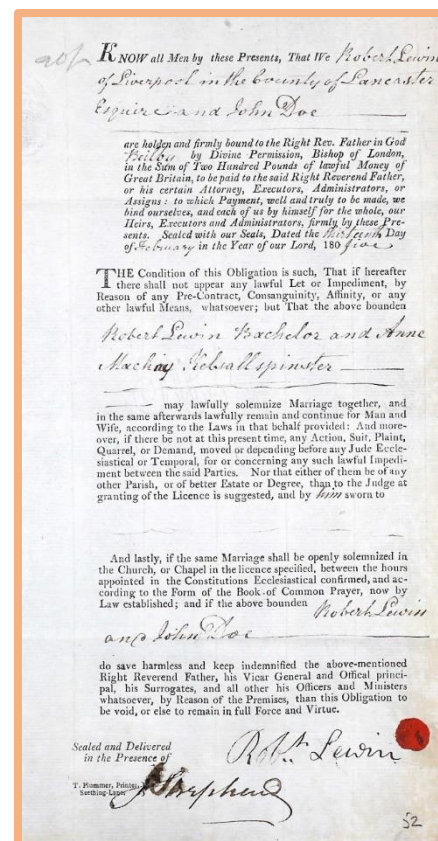 20/-
KNOW all Men by these Presents, That We Robert Lewin
of Liverpool in the County of Lancaster
Esquire and John Doe
are holden and firmly bound to the Right Rev. Father in God
Beilby by Divine Permission, Bishop of London,
in the Sum of Two Hundred Pounds of lawful Money of
Great Britain, to be paid to the said Right Reverend Father,
or his certain Attorney, Executors, Administrators, or
Assigns: to which Payment, well and truly to be made, we
bind ourselves, and each of us by himself for the whole, our
Heirs, Executors and Administrators, firmly by these Pre-
sents. Sealed with our Seals, Dated the thirteenth Day
of February in the Year of our Lord, 180 five
THE Condition of this Obligation is such, That if hereafter
there shall not appear any lawful Let or Impediment, by
Reason of any Pre-Contract, Consanguinity, Affinity, or any
other lawful Means, whatsoever; but That the above bounden
Robert Lewin Bachelor and Anne
Mackay Kelsall spinster
may lawfully solemnize Marriage together, and
in the same afterwards lawfully remain and continue for Man and
Wife, according to the Laws in that behalf provided: And more-
over, if there be not at this present time, any Action, Suit, Plaint,
Quarrel, or Demand, moved or depending before any Jude Eccle-
siastical or Temporal, for or concerning any such lawful Impedi-
ment between the said Parties. Nor that either of them be of any
other Parish, or of better Estate or Degree, than to the Judge at
granting of the Licence is suggested, and by him sworn to
And lastly, if the same Marriage shall be openly solemnized in
the Church, or Chapel in the licence specified, between the hours
appointed in the Constitutions Ecclesiastical confirmed, and ac-
cording to the Form of the Book of Common Prayer, now by
Law established; and if the above bounden Robert Lewin
and John Doe
do save harmless and keep indemnified the above-mentioned
Right Reverend Father, his Vicar General and Offical princi-
pal, his Surrogates, and all other his Officers and Ministers
whatsoever, by Reason of the Premises, than this Obligation to
be void, or else to remain in full Force and Virtue.
Sealed and Delivered
in the Presence of
Robt. Lewin
T. Plummer, Printer,
Seething-Lane
J Shephend
52